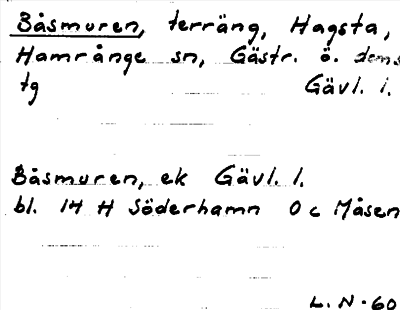 Båsmuren, terräng, Hagsta,
Hamrånge sn, Gästr. ö. doms
tg Gävl. l.
Båsmuren, ek Gävl. l.
bl. 14 H Söderhamn 0 c Måsen
L. N. 60